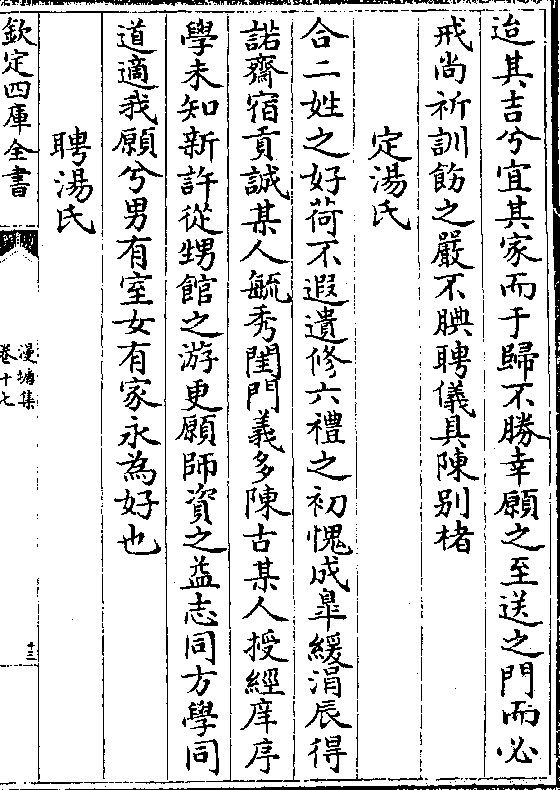 迨其吉兮宜其家而于歸不勝幸願之至送之門而必
戒尚祈訓飭之嚴不腆聘儀具陳别楮
定湯氏
合二姓之好荷不遐遺修六禮之初愧成皐緩涓辰得
諾齋宿貢誠某人毓秀閨門義多陳古某人授經庠序
學未知新許從甥館之游更願師資之益志同方學同
道適我願兮男有室女有家永為好也
聘湯氏
欽定四庫全書
漫塘集
卷十七
十三